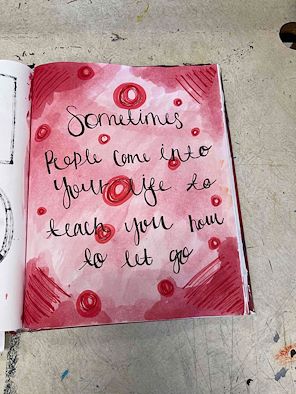 Sometimes
People come into
your life to
teach you how
to let go